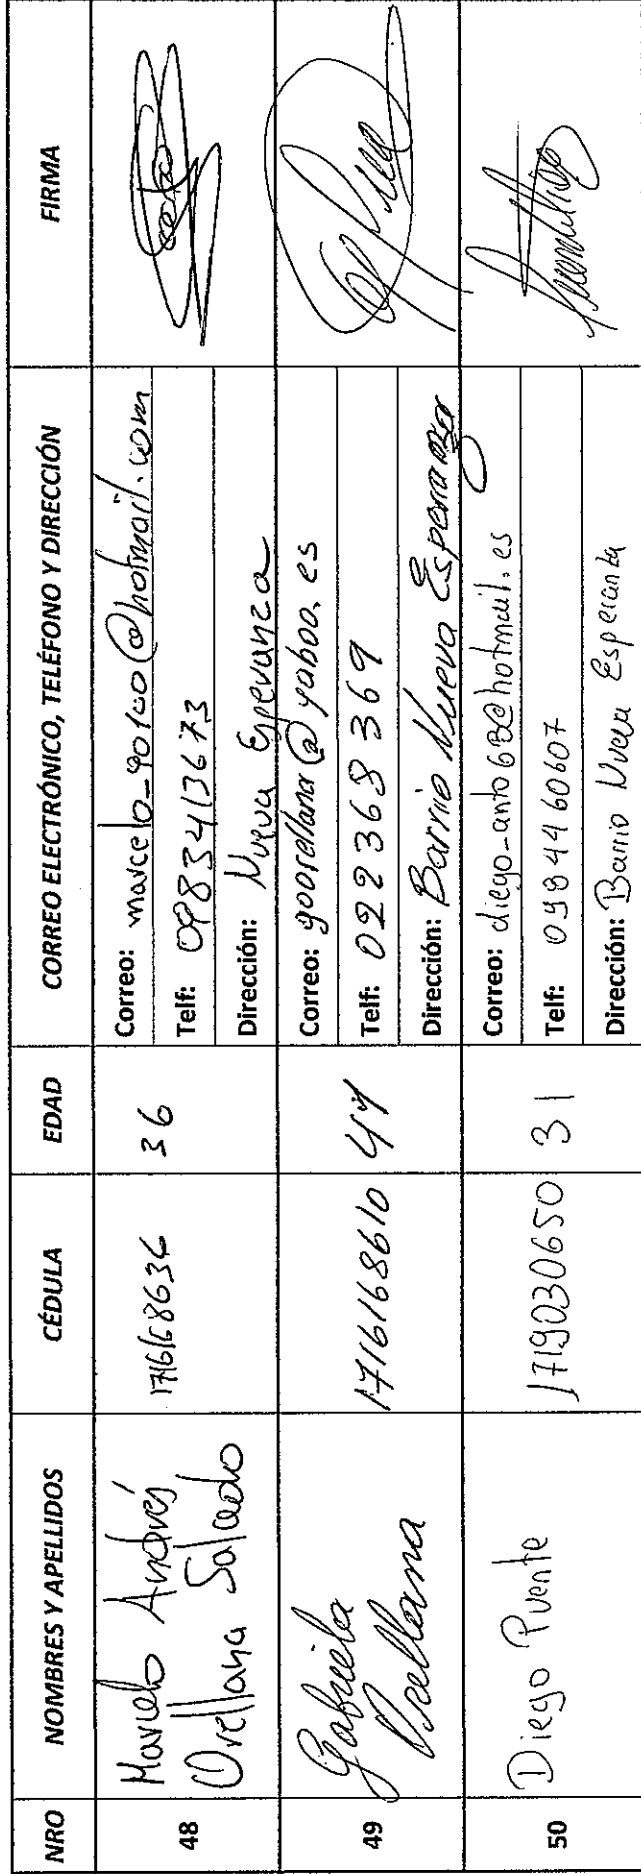 NRO NOMBRES Y APELLIDOS CÉDULA EDAD CORREO ELECTRÓNICO, TELÉFONO Y DIRECCIÓN FIRMA
48
Marcelo Andrés
Orellana Salcedo
36
Correo: marcelo_90100@hotmail.com
Telf: 0983413673
Dirección: Nueva Esperanza
49
Gabriela
Orellana
1716168610
Correo: goorellana@yahoo.es
Telf: 022368369
Dirección: Barrio Nueva Esperanza
50
Diego Puente
1719030650
31
Correo: diego-anto6B@hotmail.es
Telf: 0984460607
Dirección: Barrio Nueva Esperanza